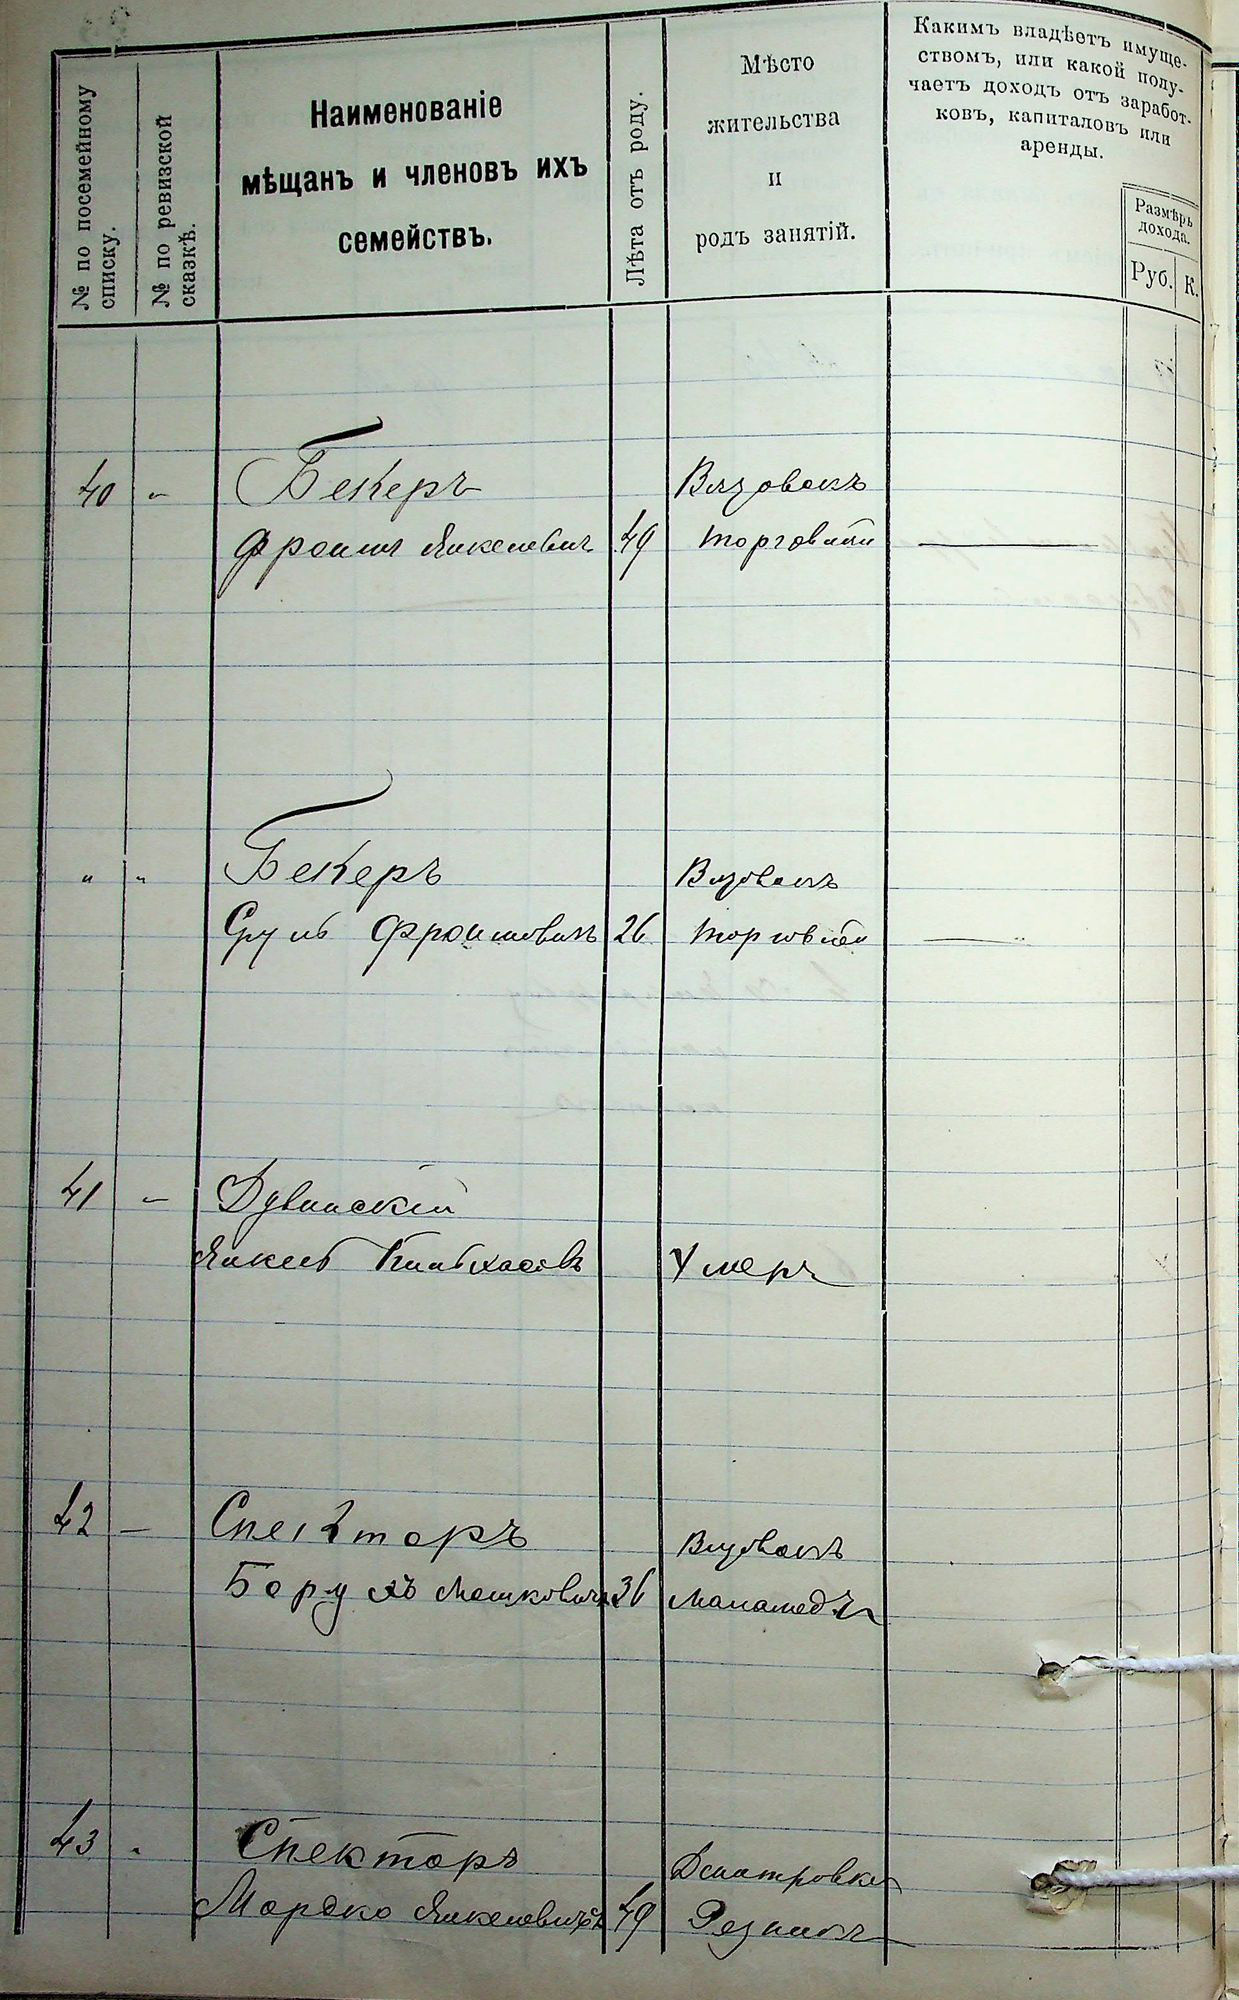 № по посемейному
списку.
№ по ревизской
сказкѣ.
Наименованіе
мѣщанъ и членовъ ихъ
семействъ.
Лѣта отъ роду.
Мѣсто
жительства
и
родъ занятій.
Какимъ владѣетъ имуще-
ствомъ, или какой полу-
чаетъ доходъ отъ заработ-
ковъ, капиталовъ или
аренды.
Размѣръ
дохода.
Руб. К.
40 " Бекеръ Вязовокъ
Фроимъ Янкелевичъ 49 торговля
" " Бекеръ Вязовокъ
Сруль Фроимовичъ 26 торговля
41 - Дувинскій
Янкель Пинхасовъ Умеръ
42 - Спекторъ Вязовокъ
Борухъ Мошковичъ 36 Меламедъ
43 " Спекторъ Дмитровка
Мордко Янкелевичъ 49 Резникъ